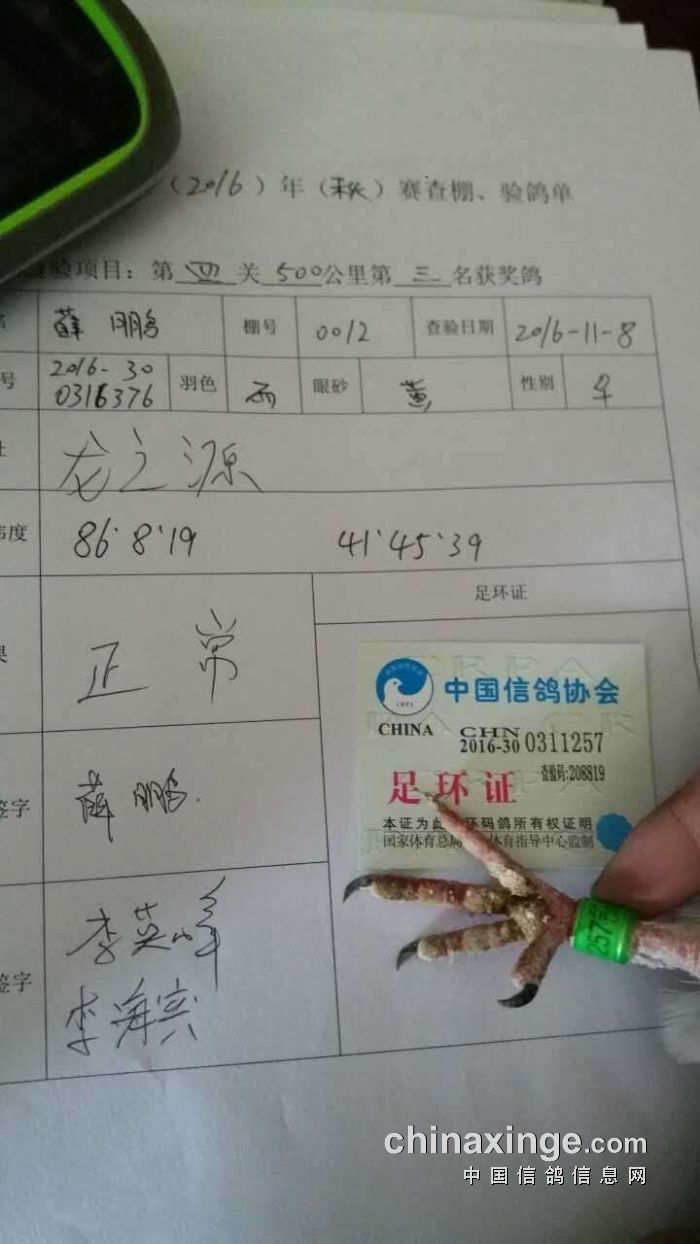 （2016）年（秋）赛查棚、验鸽单
查验项目：第四关500公里第三名获奖鸽
薛鹏 棚号 0012 查验日期 2016-11-8
号 2016-30 0316376 羽色 雨 眼砂 黄 性别
址 龙之源
纬度 86·8·19 41·45·39
果 正常 足环证
中国信鸽协会
CHINA CHN
2016-30 0311257
查验码:208819
足环证
本证为此 环码鸽所有权证明
国家体育总局 体育指导中心监制
签字 薛鹏.
签字 李英峰
李海宾
chinaxinge.com
中国信鸽信息网